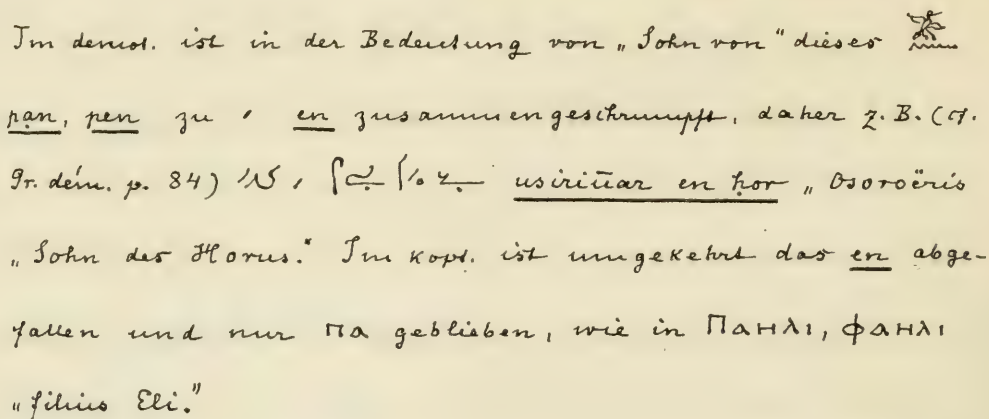 Im demot. ist in der Bedeutung von „Sohn von" dieses
pan, pen zu en zusammengeschrumpft, daher z. B. (cf.
Gr. dém. p. 84) usiriūar en ḥor „Osoroëris
„Sohn des Horus." Im kopt. ist umgekehrt das en abge-
fallen und nur ⲡⲁ geblieben, wie in ⲡⲁⲏⲗⲓ, ⲫⲁⲏⲗⲓ
„filius Eli."